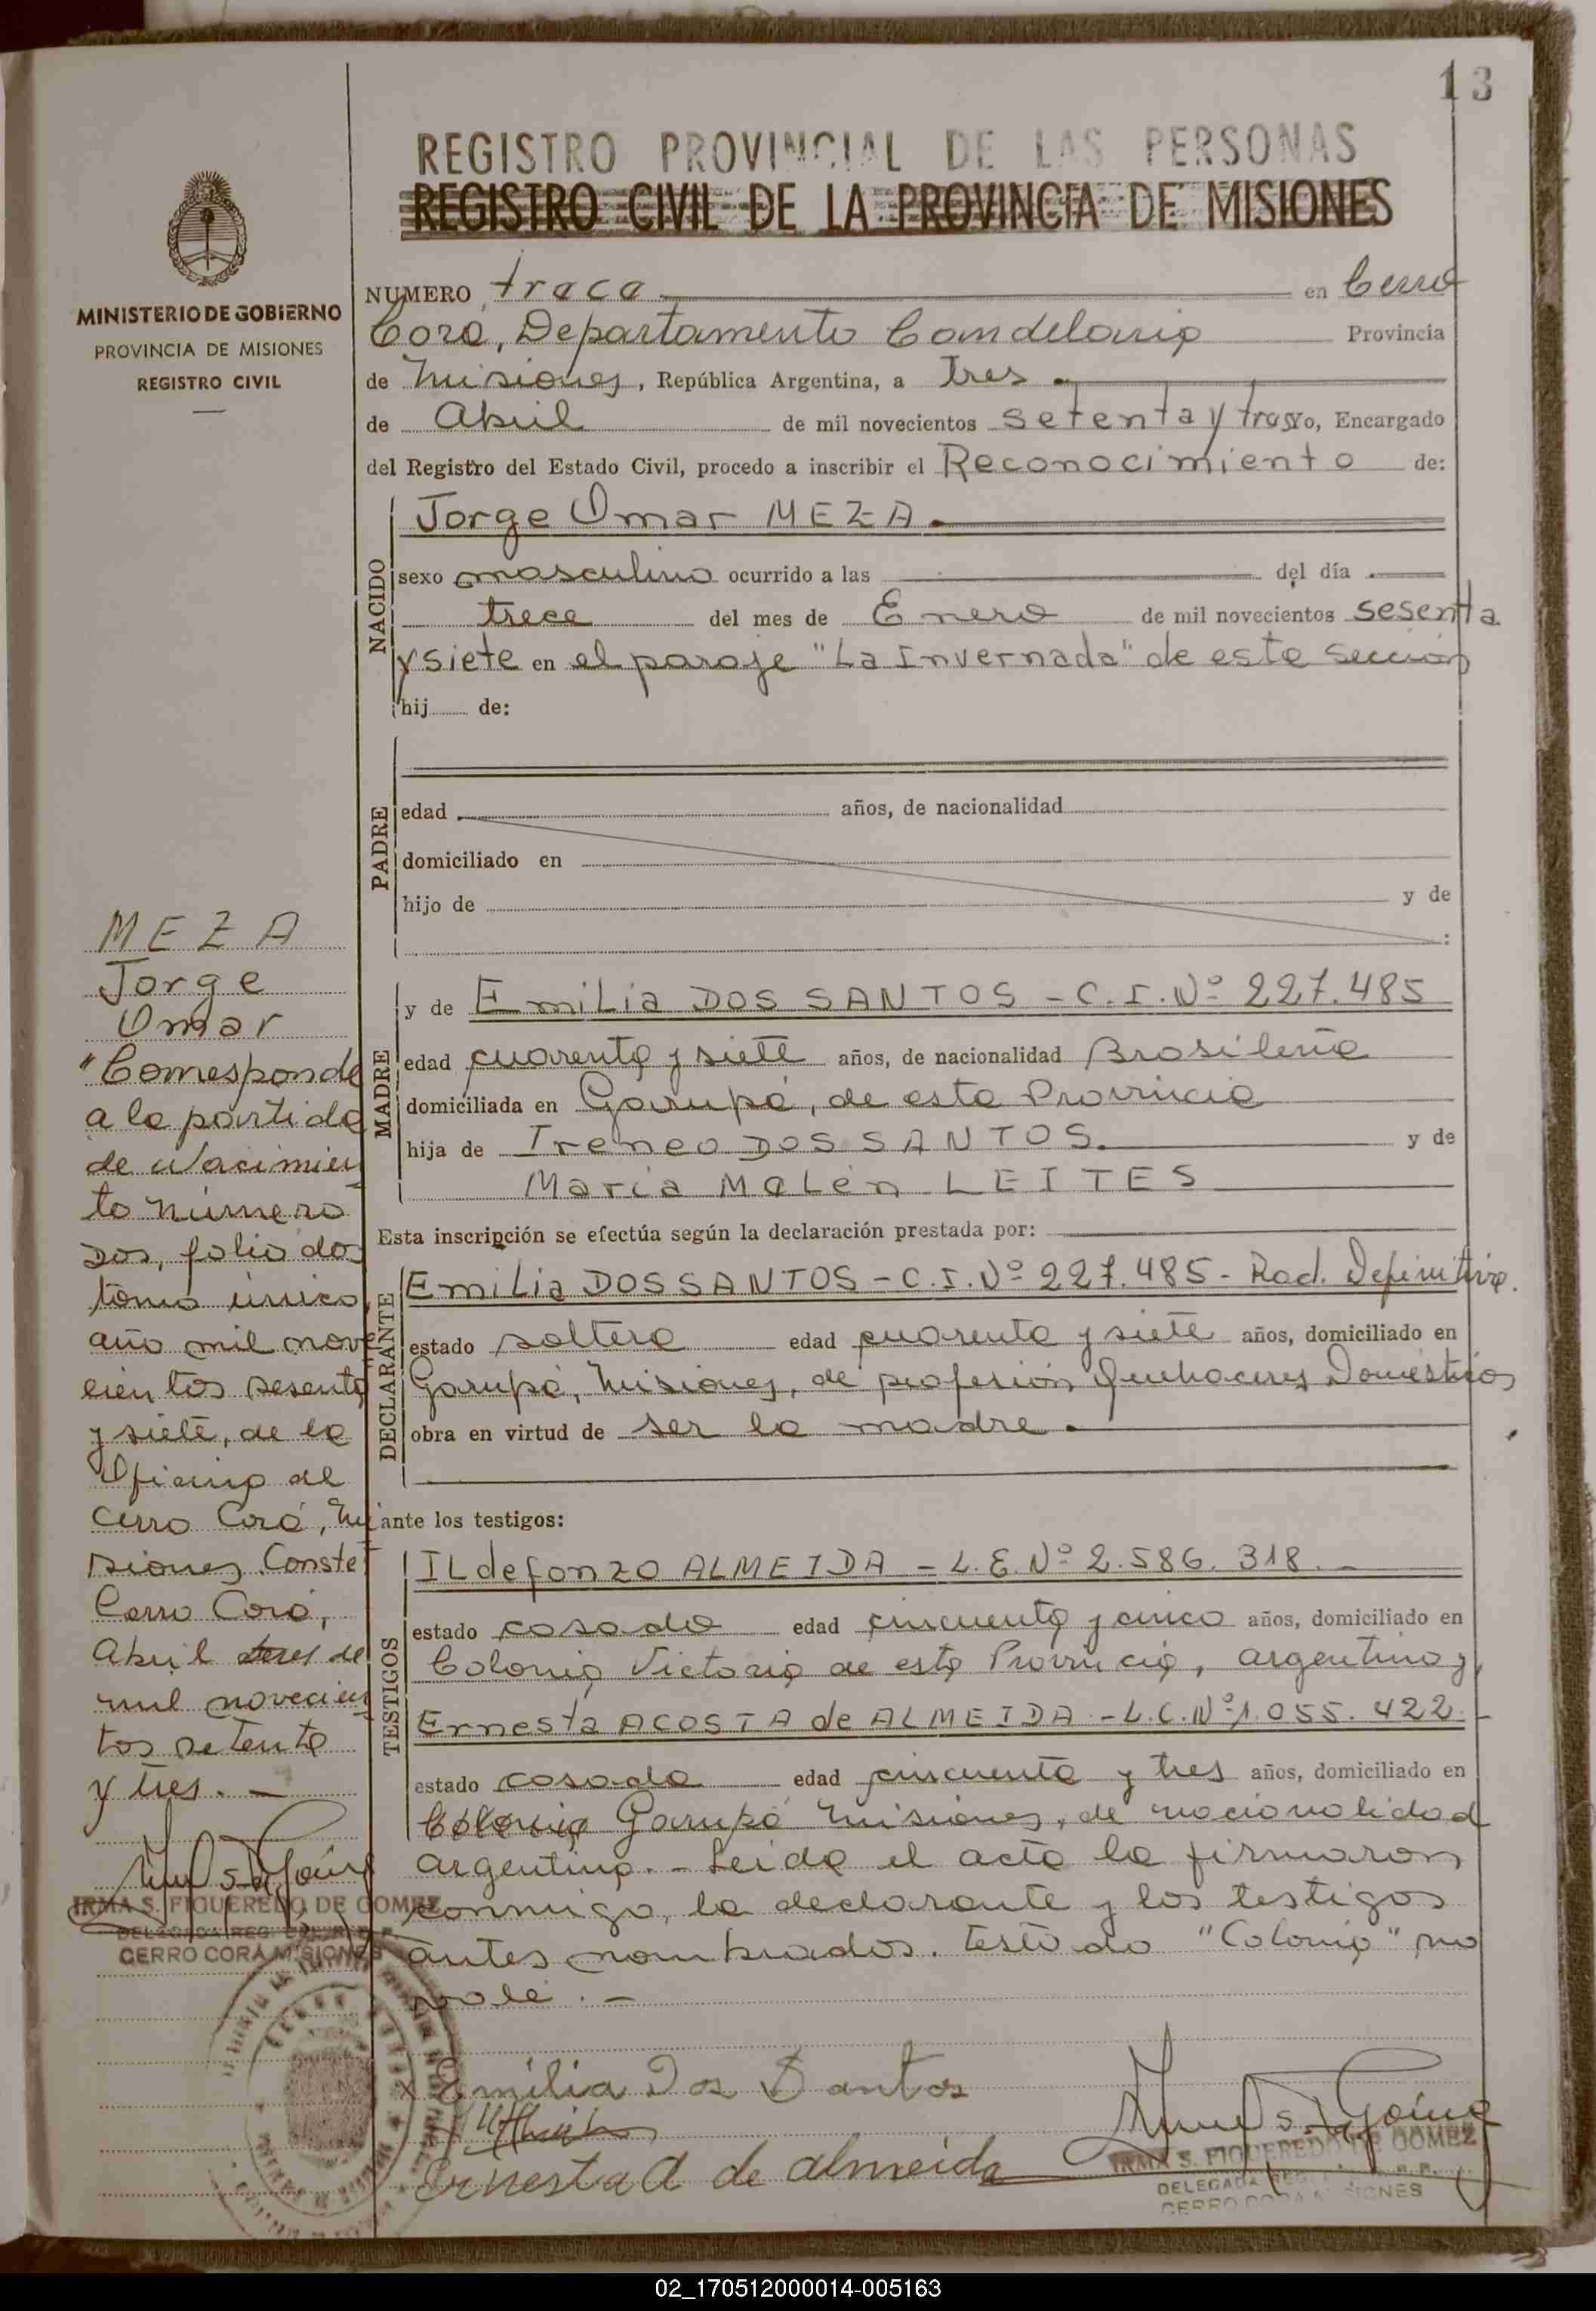 13
REGISTRO PROVINCIAL DE LAS PERSONAS
REGISTRO CIVIL DE LA PROVINCIA DE MISIONES
MINISTERIO DE GOBIERNO
PROVINCIA DE MISIONES
REGISTRO CIVIL
NUMERO trece en Cerro
Corá, Departamento Candelaria Provincia
de Misiones, República Argentina, a Tres
de Abril de mil novecientos setenta y tres yo, Encargado
del Registro del Estado Civil, procedo a inscribir el Reconocimiento de:
NACIDO
Jorge Omar MEZA.
sexo masculino ocurrido a las del día
trece del mes de Enero de mil novecientos sesenta
y siete en el paraje "La Invernada" de esta sección
hij de:
PADRE
edad años, de nacionalidad
domiciliado en
hijo de y de
:
MADRE
y de Emilia DOS SANTOS - C.I. Nº 227.485
edad cuarenta y siete años, de nacionalidad Brasileña
domiciliada en Garupá, de esta Provincia
hija de Ireneo DOS SANTOS. y de
María Malén LEITES
Esta inscripción se efectúa según la declaración prestada por:
DECLARANTE
Emilia DOS SANTOS - C.I. Nº 227.485 - Rad. Definitiva.
estado soltera edad cuarenta y siete años, domiciliado en
Garupá, Misiones, de profesión Quehaceres Domésticos
obra en virtud de ser la madre.
ante los testigos:
TESTIGOS
ILdefonzo ALMEIDA - L.E. Nº 2.586.318.-
estado casado edad cincuenta y cinco años, domiciliado en
Colonia Victoria de esta Provincia, argentino y
Ernesta ACOSTA de ALMEIDA - L.C. Nº 1.055.422.-
estado casada edad cincuenta y tres años, domiciliado en
Colonia Garupá Misiones, de nacionalidad
argentina.- Leída el acta la firmaron
conmigo, la declarante y los testigos
antes nombrados. Testado "Colonia" no
vale.-
MEZA
Jorge
Omar
"Corresponde
a la partida
de Nacimien
to número
Dos, folio dos
tomo único,
año mil nove
cientos sesenta
y siete, de la
Oficina de
Cerro Corá, Mi
siones. Conste"
Cerro Corá,
Abril tres de
mil novecien
tos setenta
y tres.-
IRMA S. FIGUEREDO DE GOMEZ
DELEGADA REG.
CERRO CORA MISIONES
x Emilia Dos Santos
Ernesta A de Almeida
IRMA S. FIGUEREDO DE GOMEZ
DELEGADA REG.
CERRO CORA MISIONES
02_170512000014-005163